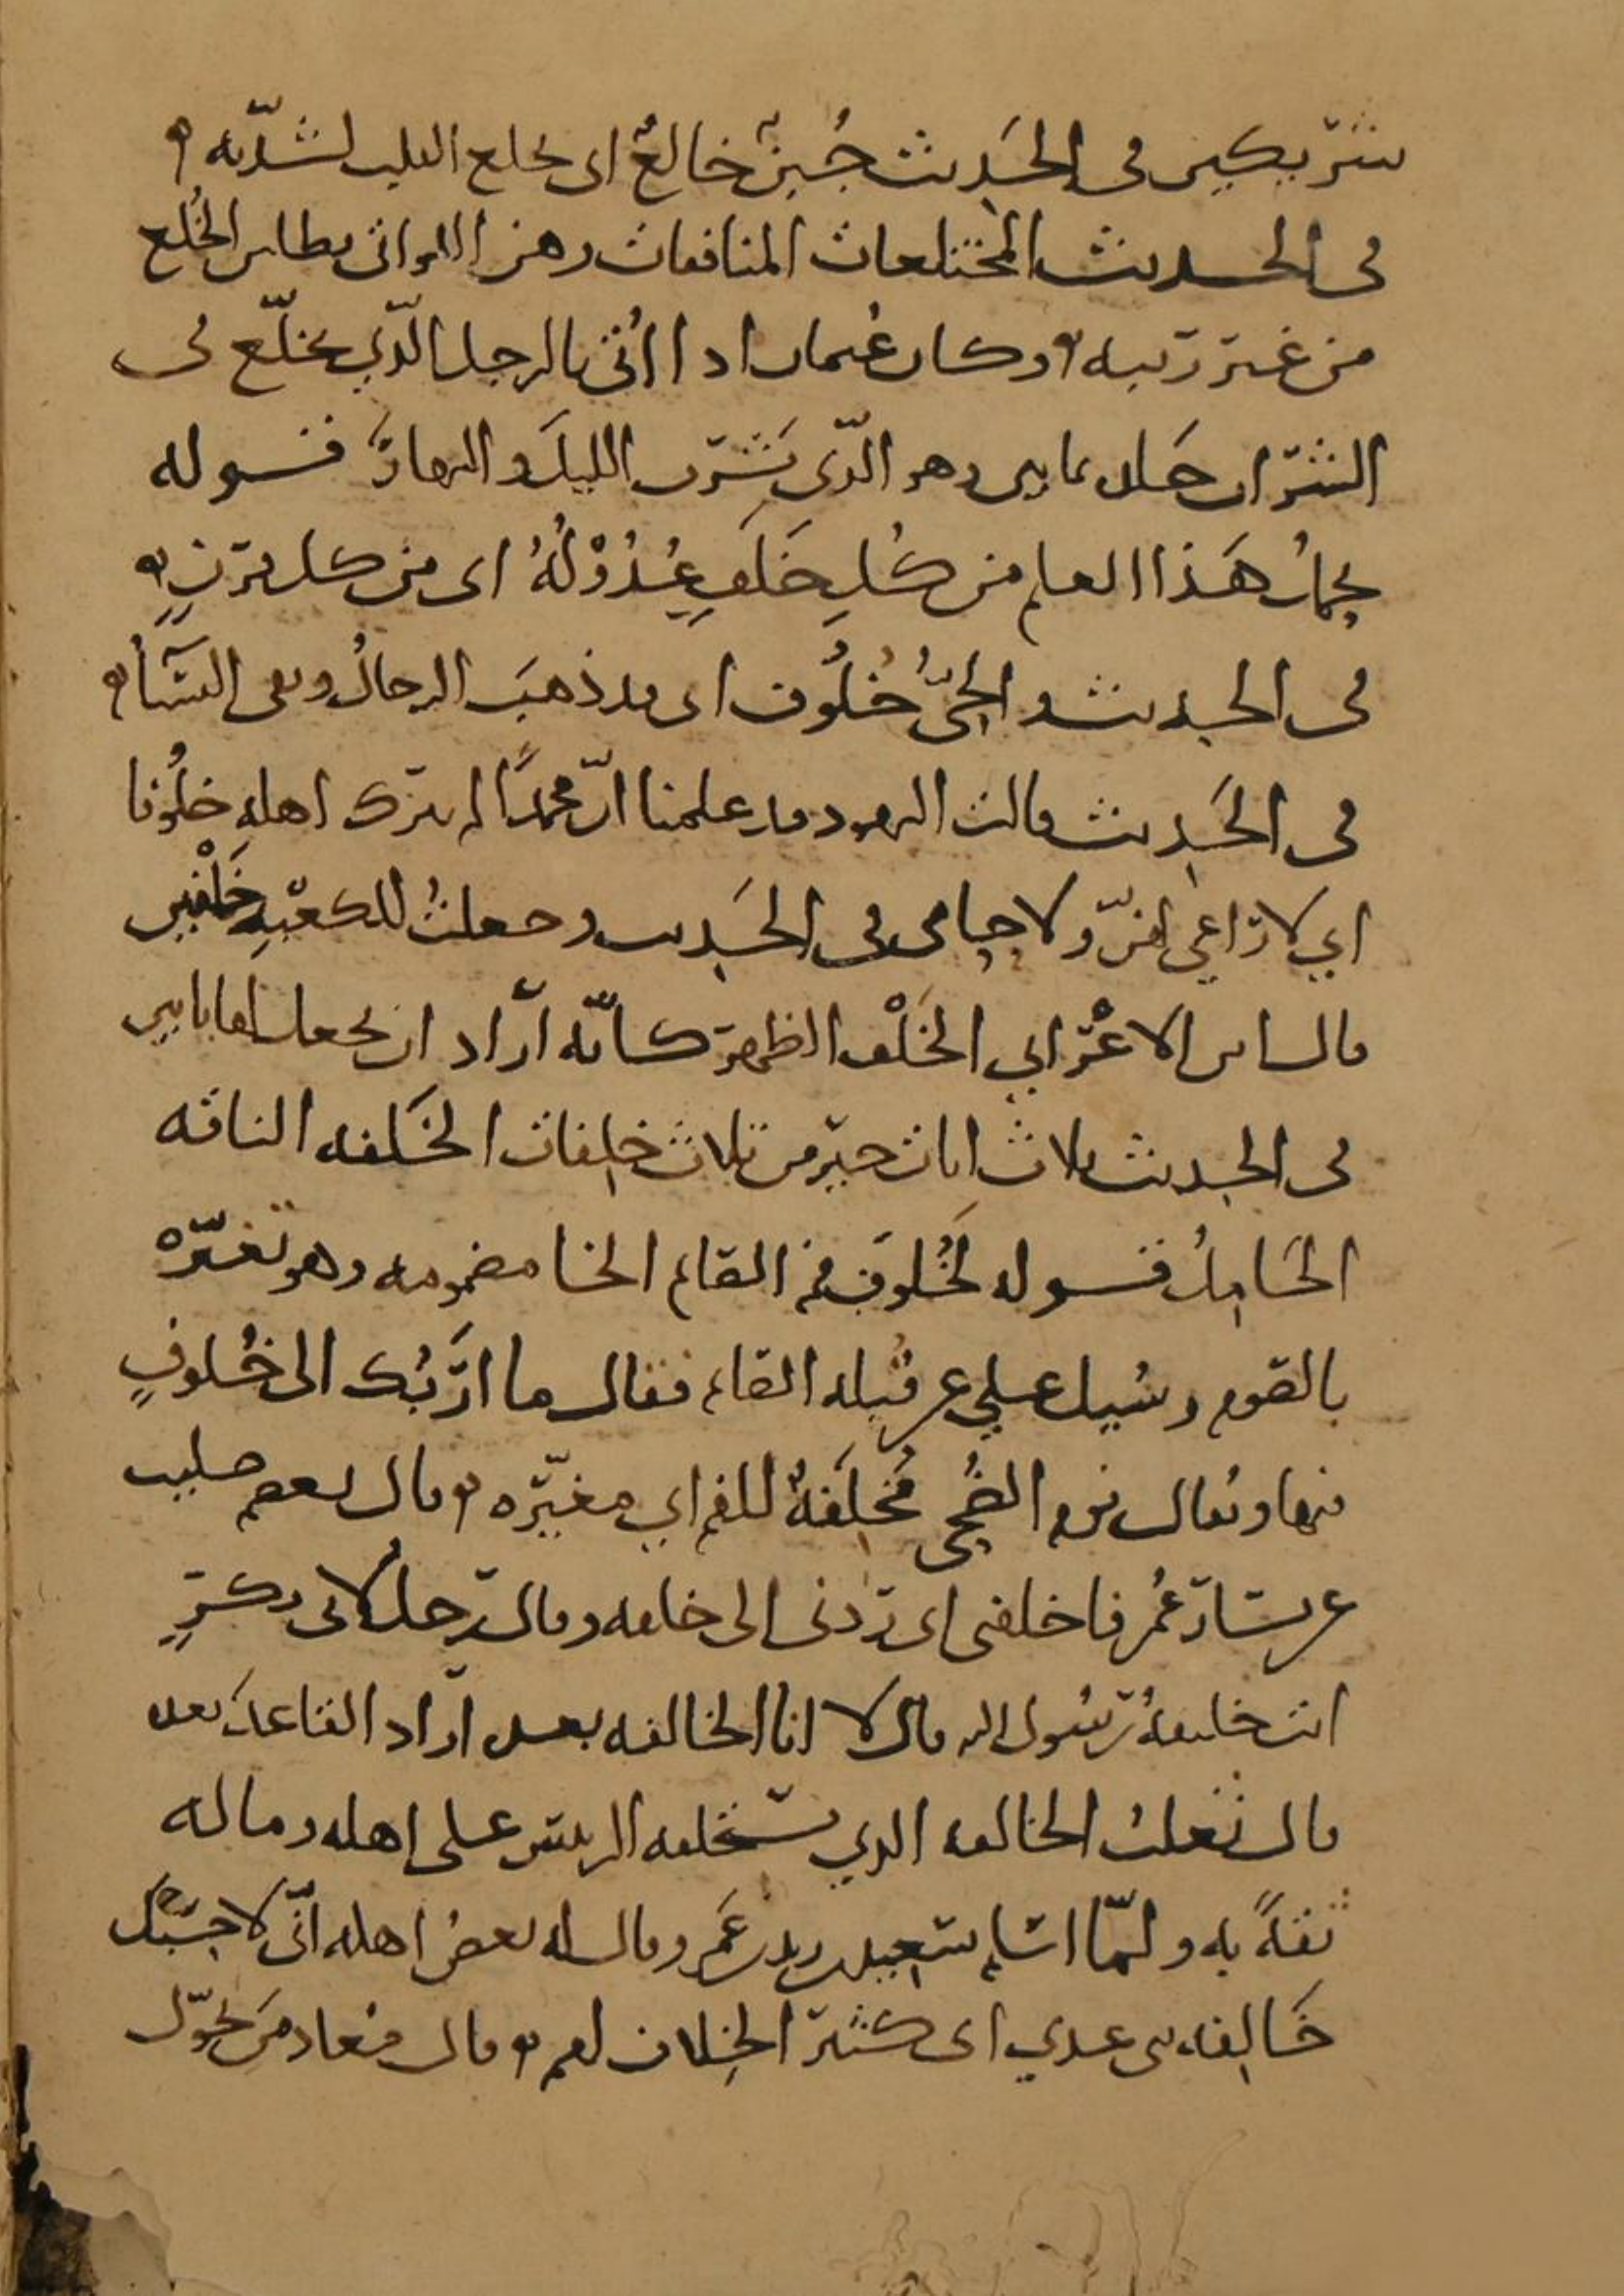 شريكين في الحَديث جُبنٌ خالعٌ اى يخلع القلب لشدّته
في الحديث المختلعات المنافقات وهن اللواتى يطلبن الخُلع
من غير ريبه وكان عُثمان اذا اُتى بالرجل الّذي تخلّع في
الشراب جلده ثمانين وهو الّذى يَشرب الليلَ والنهارَ قوله
يحملُ هَذا العلم من كُلِ خَلَفٍ عُدُوْلُهُ اى من كل قرنٍ
في الحديث والحىُّ خُلُوف اى قد ذهبَ الرجالُ وبقى النسآءُ
في الحَديث قالت اليهود قد علمنا انّ محمدًا لم يترك اهله خلُوفا
اي لا راعي لهنّ ولا حامى في الحَديث وجعلتُ للكعبَةِ خَلْفين
قال ابن الاعْرابي الخَلْف الظهر كانّه اراد ان يجعل لها بابين
في الحديث ثلاث ايات خير من ثلاث خلفات الخَلفه الناقه
الحَاملُ قوله لخُلوف فم الصائم الخا مضمومه وهو تغيّره
بالصوم وسُيل علي عن قُبله الصائم فقال ما اَرَبُك الى خُلوفِ
فيها ويُقال نومه الضُحى مُخلِفةٌ للفم اي مغيّره وقال بعضهم جلبت
عن يسَار عُمر فاخلفنى اى ردنى الى خلفه وقال رجلٌ لابى بكرٍ
انت خليفةُ رسُول الله قال لا انا الخالفه بعده اراد القاعدَ بعده
قال ثعلبُ الخالفه الذي يستخلفه الرييس على اهله وماله
ثقةً به ولمّا اسلم سَعيد بن زيد بن عَمرو قال له بعضُ اهله انّى لاحسبُك
خَالفه بنى عدي اى كثير الخِلاف لهم وقال معاذ مَن تحوّل